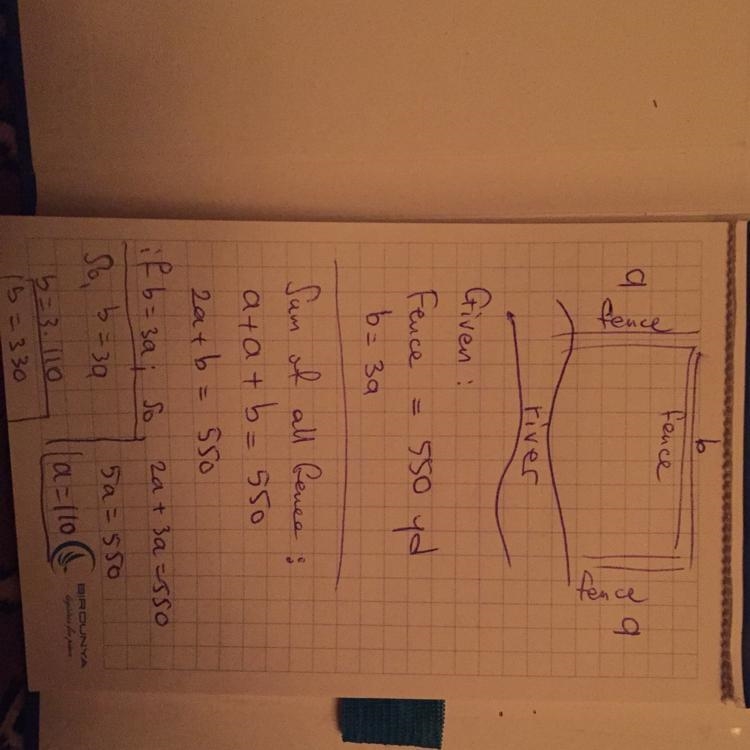 b
a
fence
fence
fence
a
river
Given:
Fence = 550 yd
b = 3a
Sum of all fence:
a+a+b = 550
2a+b = 550
if b=3a; so 2a+3a=550
5a=550
a=110
So, b=3a
b=3·110
b=330
BIRDUNYA